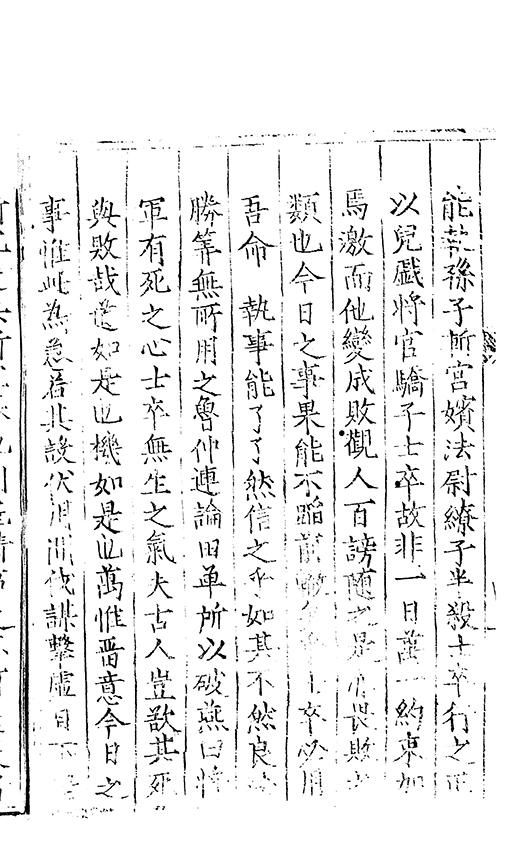 能執孫子斬宮嬪法尉繚子半殺士卒行之
以兒戲將官驕子士卒故非一日萬一約束加
焉激而他變成敗觀人百謗隨之是畏敗
類也今日之事果能不蹈前士卒必用
吾命 執事能了了然信之乎如其不然良
勝筭無所用之魯仲連論田單所以破燕曰將
軍有死之心士卒無生之氣夫古人豈欲其死
與敗哉道如是也機如是也萬惟晋意今日之
事惟此為急若其設伏用間伐謀擊虛